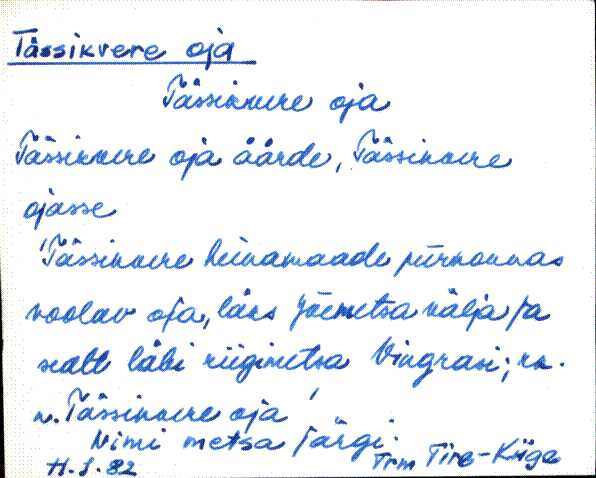 Tässikvere oja
Tässikvere oja
Tässikvere oja äärde, Tässikvere
ojasse
'Tässikvere heinamaade piirkonnas
voolav oja, läks Jõemetsa välja ja
sealt läbi riigimetsa
n. Tässikvere oja'
Nimi metsa järgi.
H. J. 82 Trm Tire-Kiige